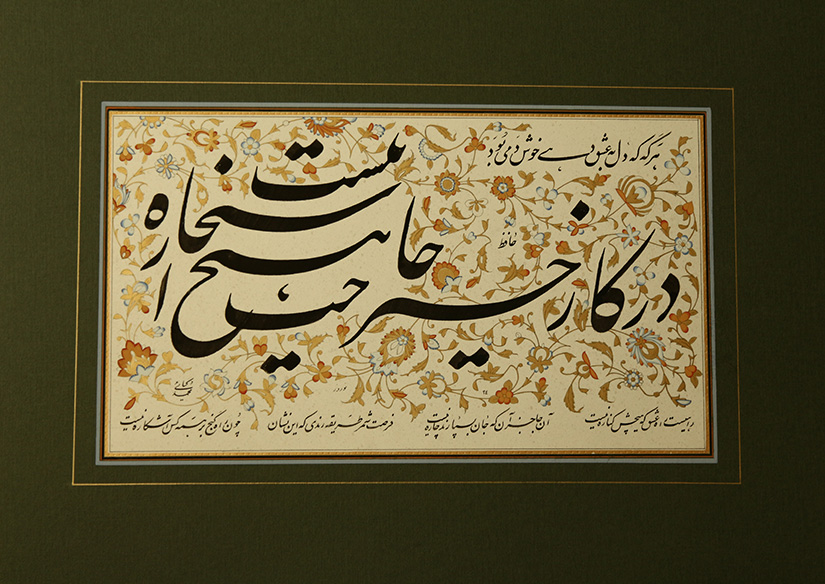 هرگه که دل به عشق دهی خوش دمی بود
حافظ
در کار خیر حاجت هیچ استخاره نیست
راهیست راه عشق که هیچش کناره نیست آنجا جز آن که جان بسپارند چاره نیست فرصت شمر طریقه رندی که این نشان چون راه گنج بر همه کس آشکاره نیست